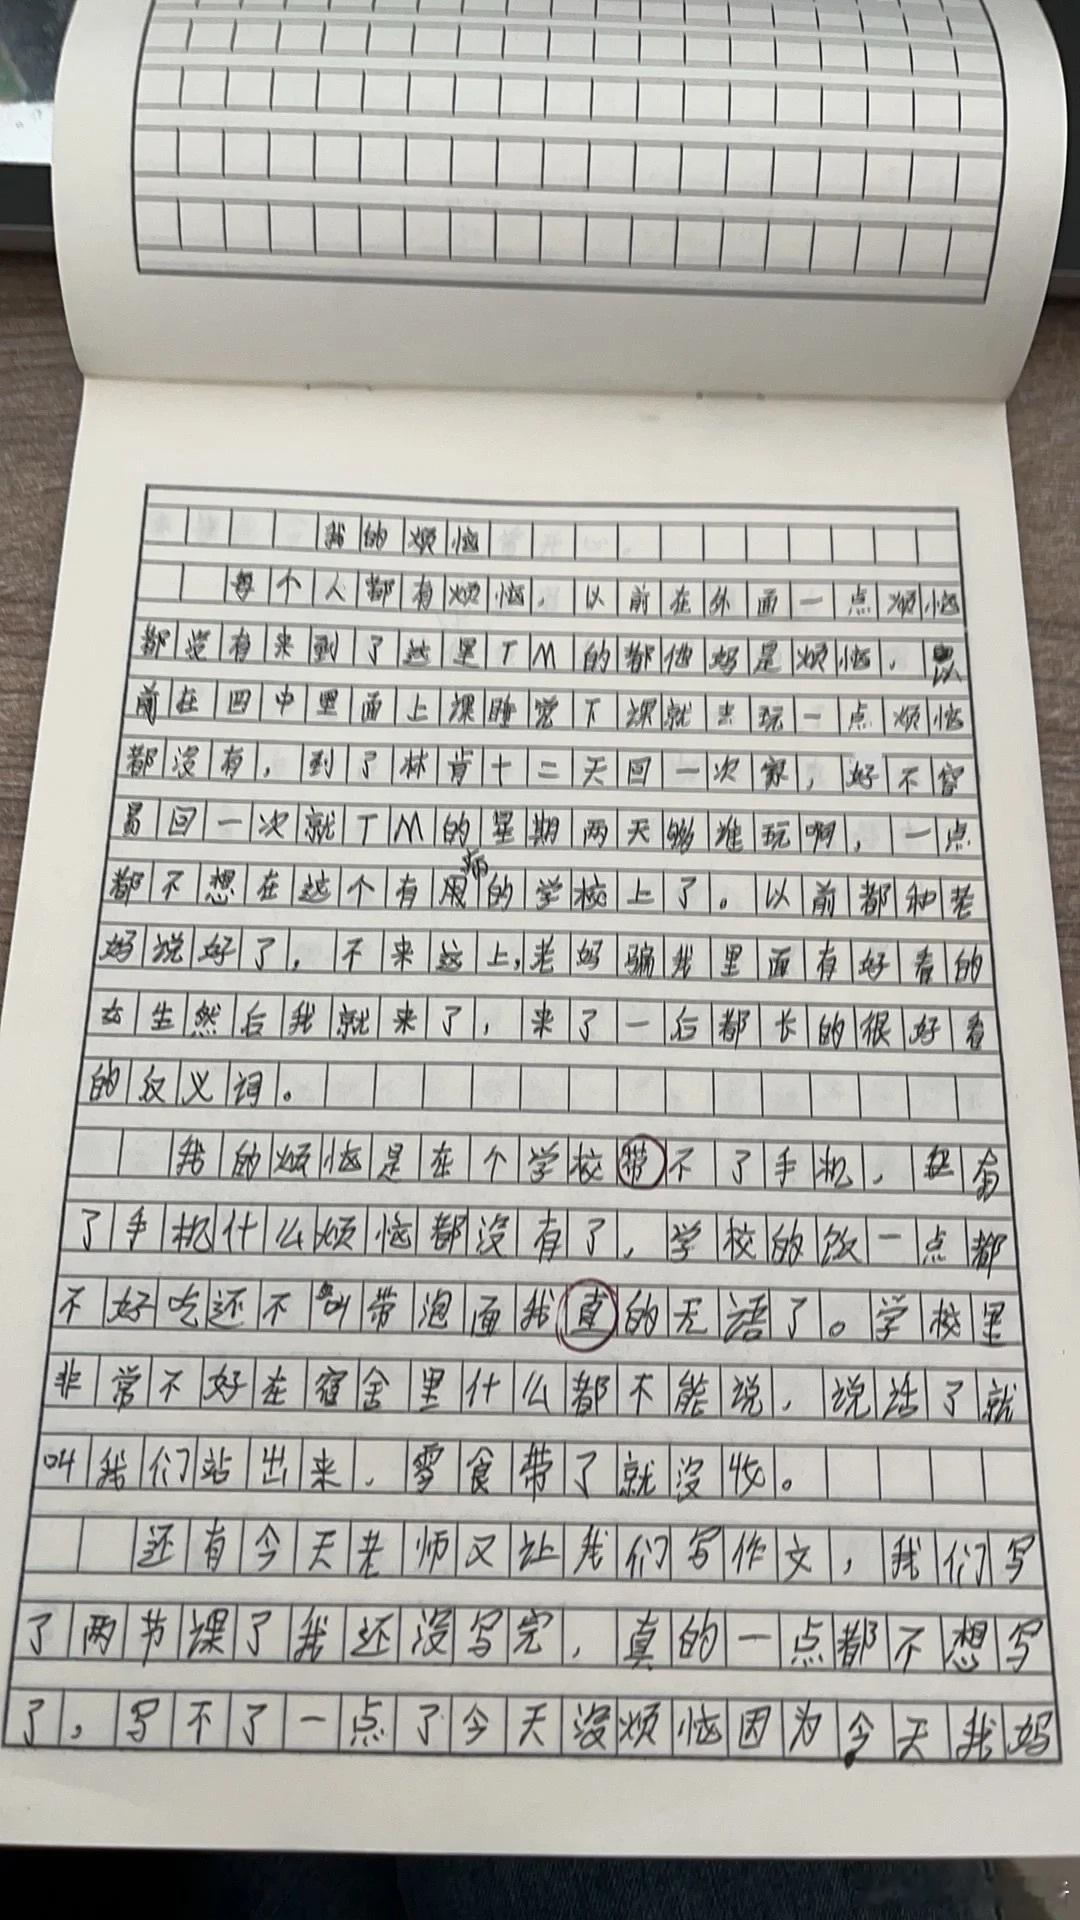 我的烦恼
每个人都有烦恼，以前在外面一点烦恼
都没有来到了这里TM的都他妈是烦恼，以
前在四中里面上课睡觉下课就去玩一点烦恼
都没有，到了林肯十二天回一次家，好不容
易回一次就TM的星期两天够谁玩啊，一点
都不想在这个有病的学校上了。以前都和老
妈说好了，不来这上，老妈骗我里面有好看的
女生然后我就来了，来了一后都长的很好看
的反义词。
我的烦恼是在个学校带不了手机，
了手机什么烦恼都没有了，学校的饭一点都
不好吃还不叫带泡面我真的无语了。学校里
非常不好在宿舍里什么都不能说，说话了就
叫我们站出来，零食带了就没收。
还有今天老师又让我们写作文，我们写
了两节课了我还没写完，真的一点都不想写
了，写不了一点了今天没烦恼因为今天我妈